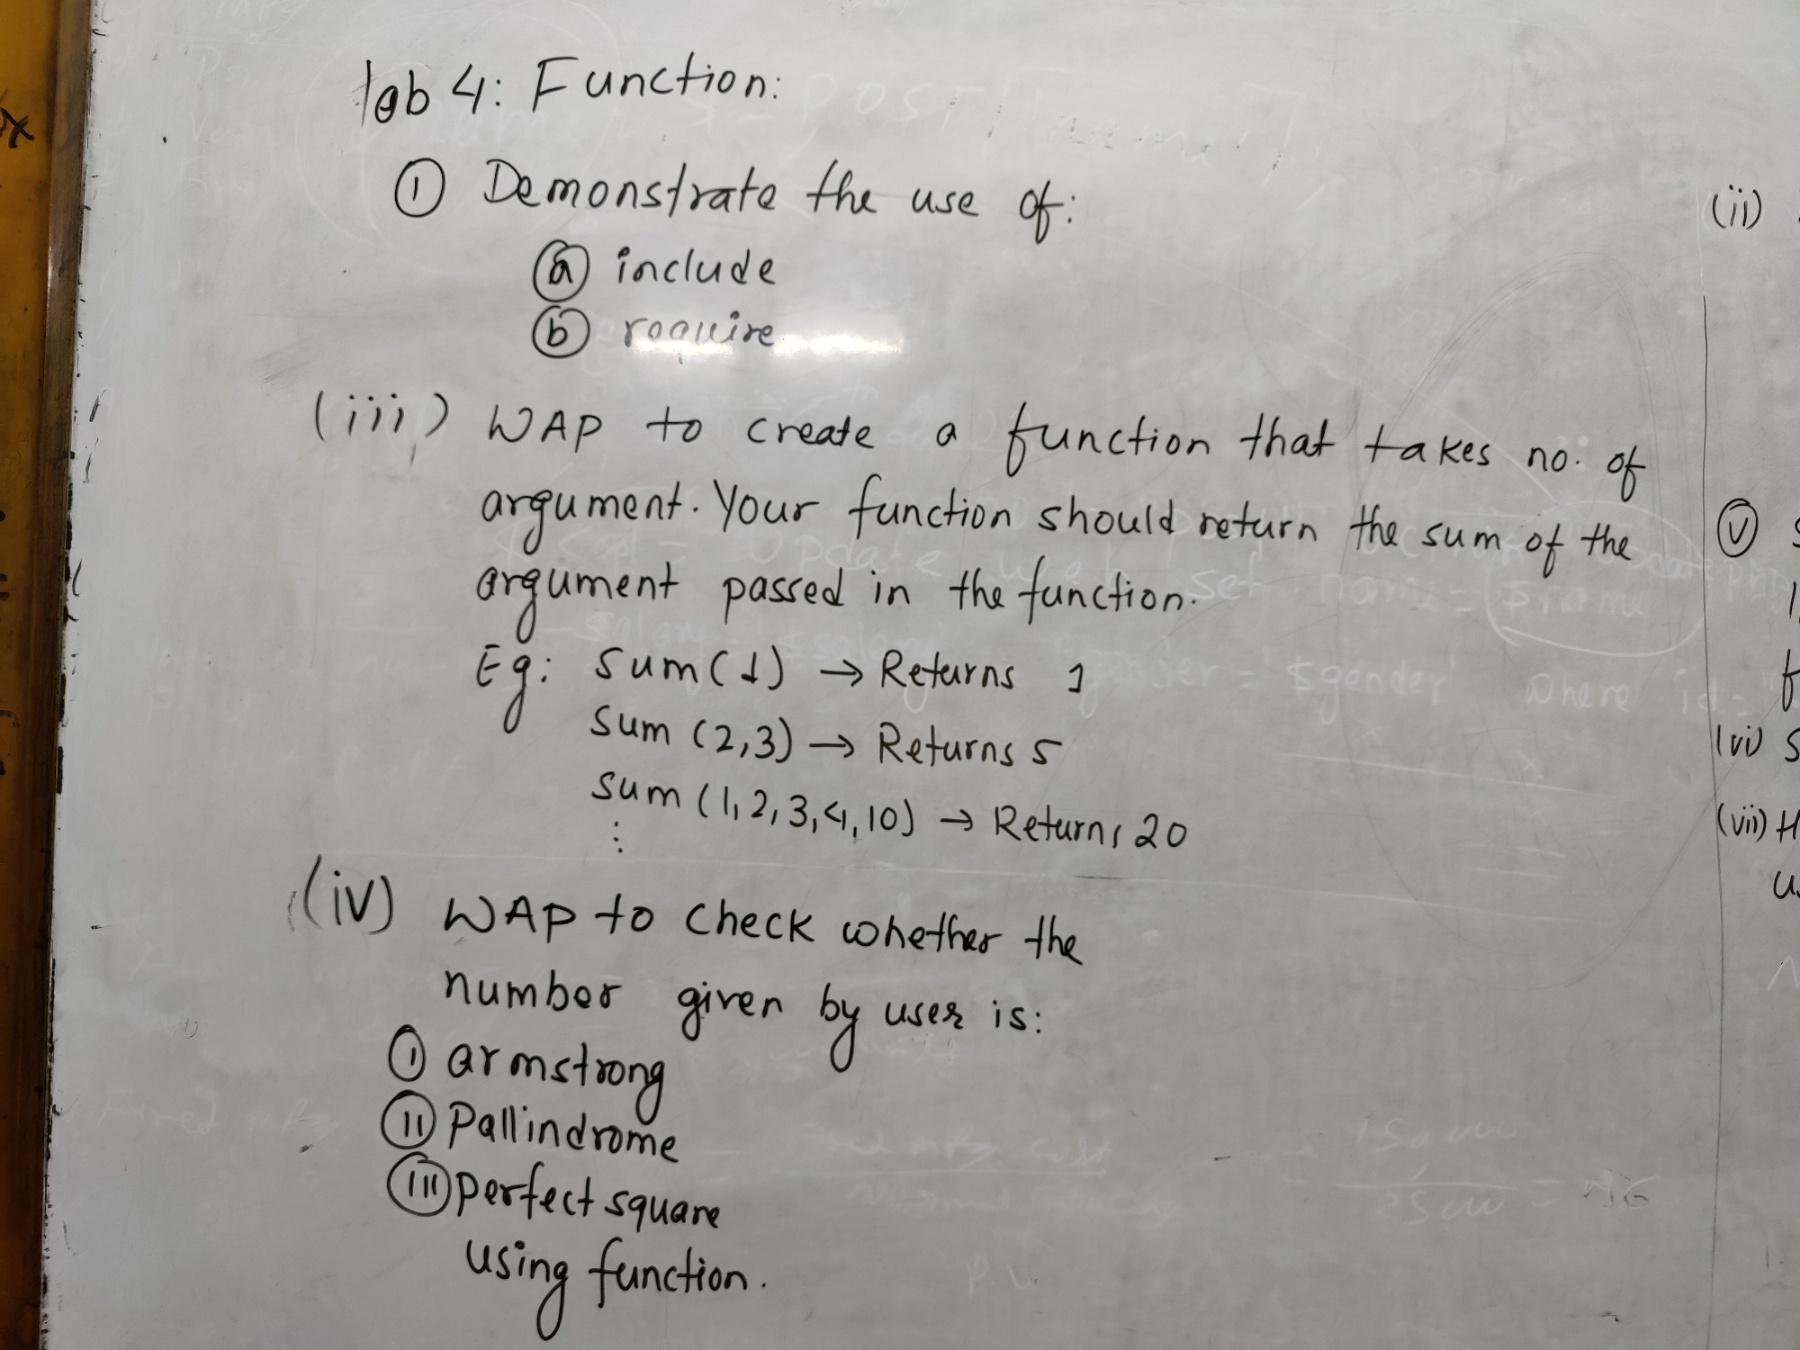 lab 4: Function:
① Demonstrate the use of:
ⓐ include
ⓑ require
(iii) WAP to create a function that takes no. of
argument. Your function should return the sum of the
argument passed in the function.
Eg: sum(1) → Returns 1
sum (2,3) → Returns 5
sum (1,2,3,4,10) → Returns 20
⋮
(iv) WAP to check whether the
number given by user is:
ⓘ armstrong
ⓘⓘ Pallindrome
ⓘⓘⓘ perfect square
using function.
(ii)
ⓥ
(vi)
(vii)